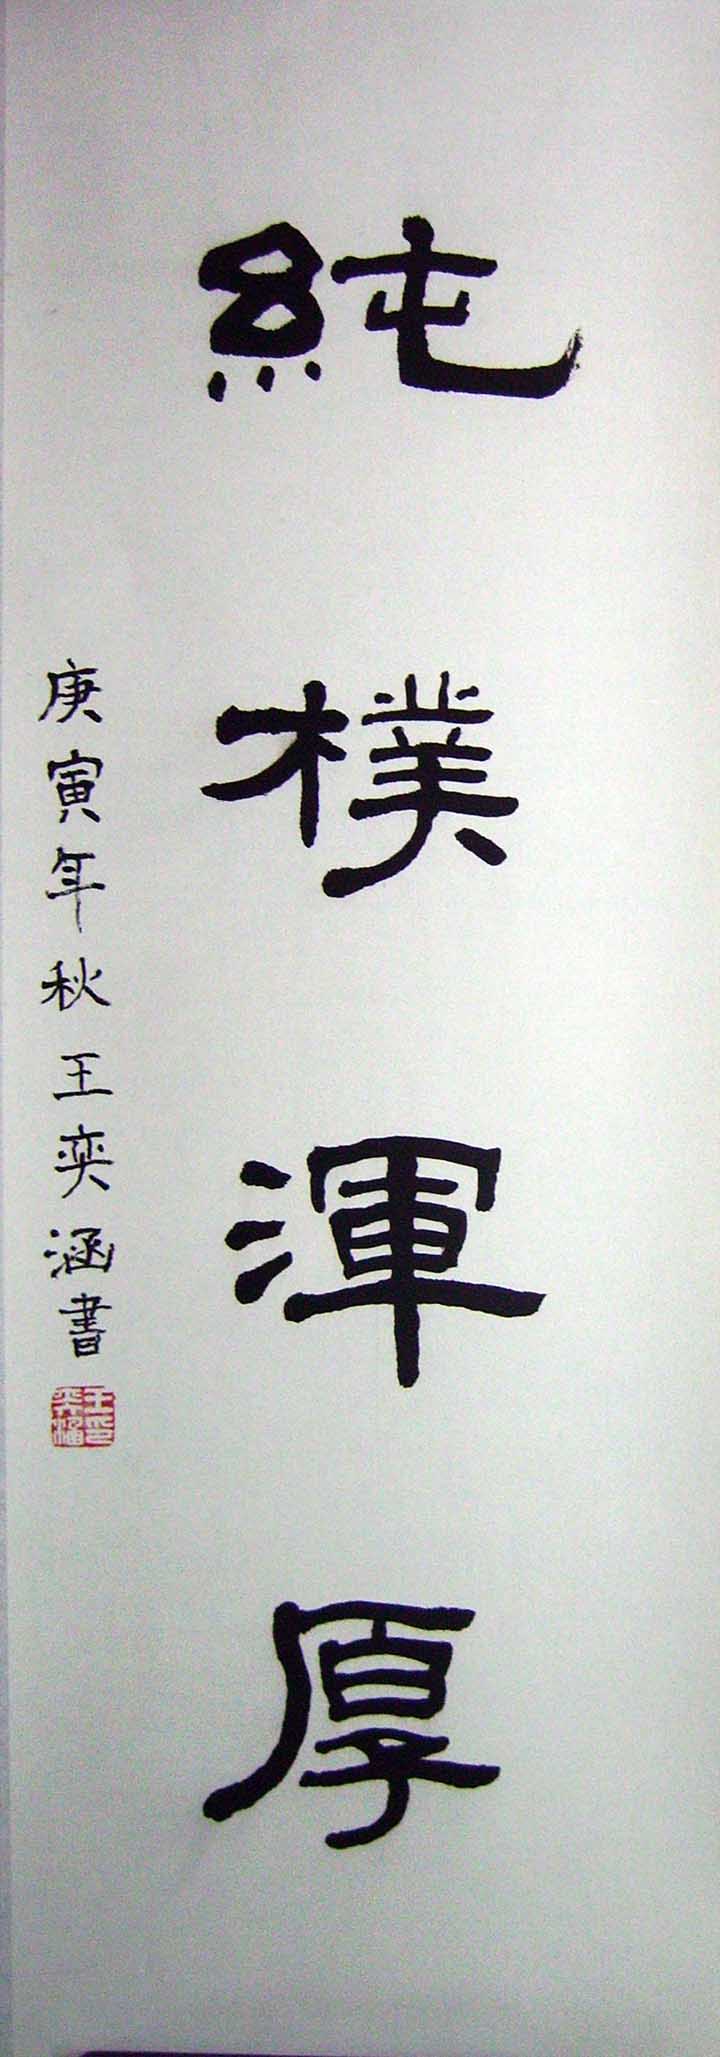 純樸渾厚
庚寅年秋王奕涵書
王奕涵印